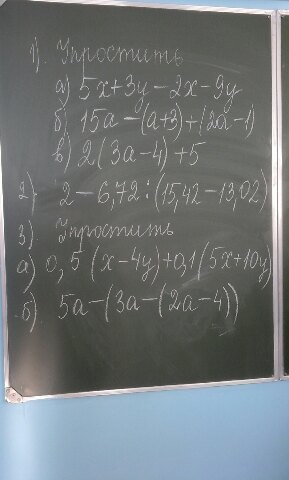 1). Упростить
а) 5x+3y−2x−9y
б) 15a−(a+3)+(2a−1)
в) 2(3a−4)+5
2) 2−6,72:(15,42−13,02)
3) Упростить
а) 0,5(x−4y)+0,1(5x+10y)
б) 5a−(3a−(2a−4))